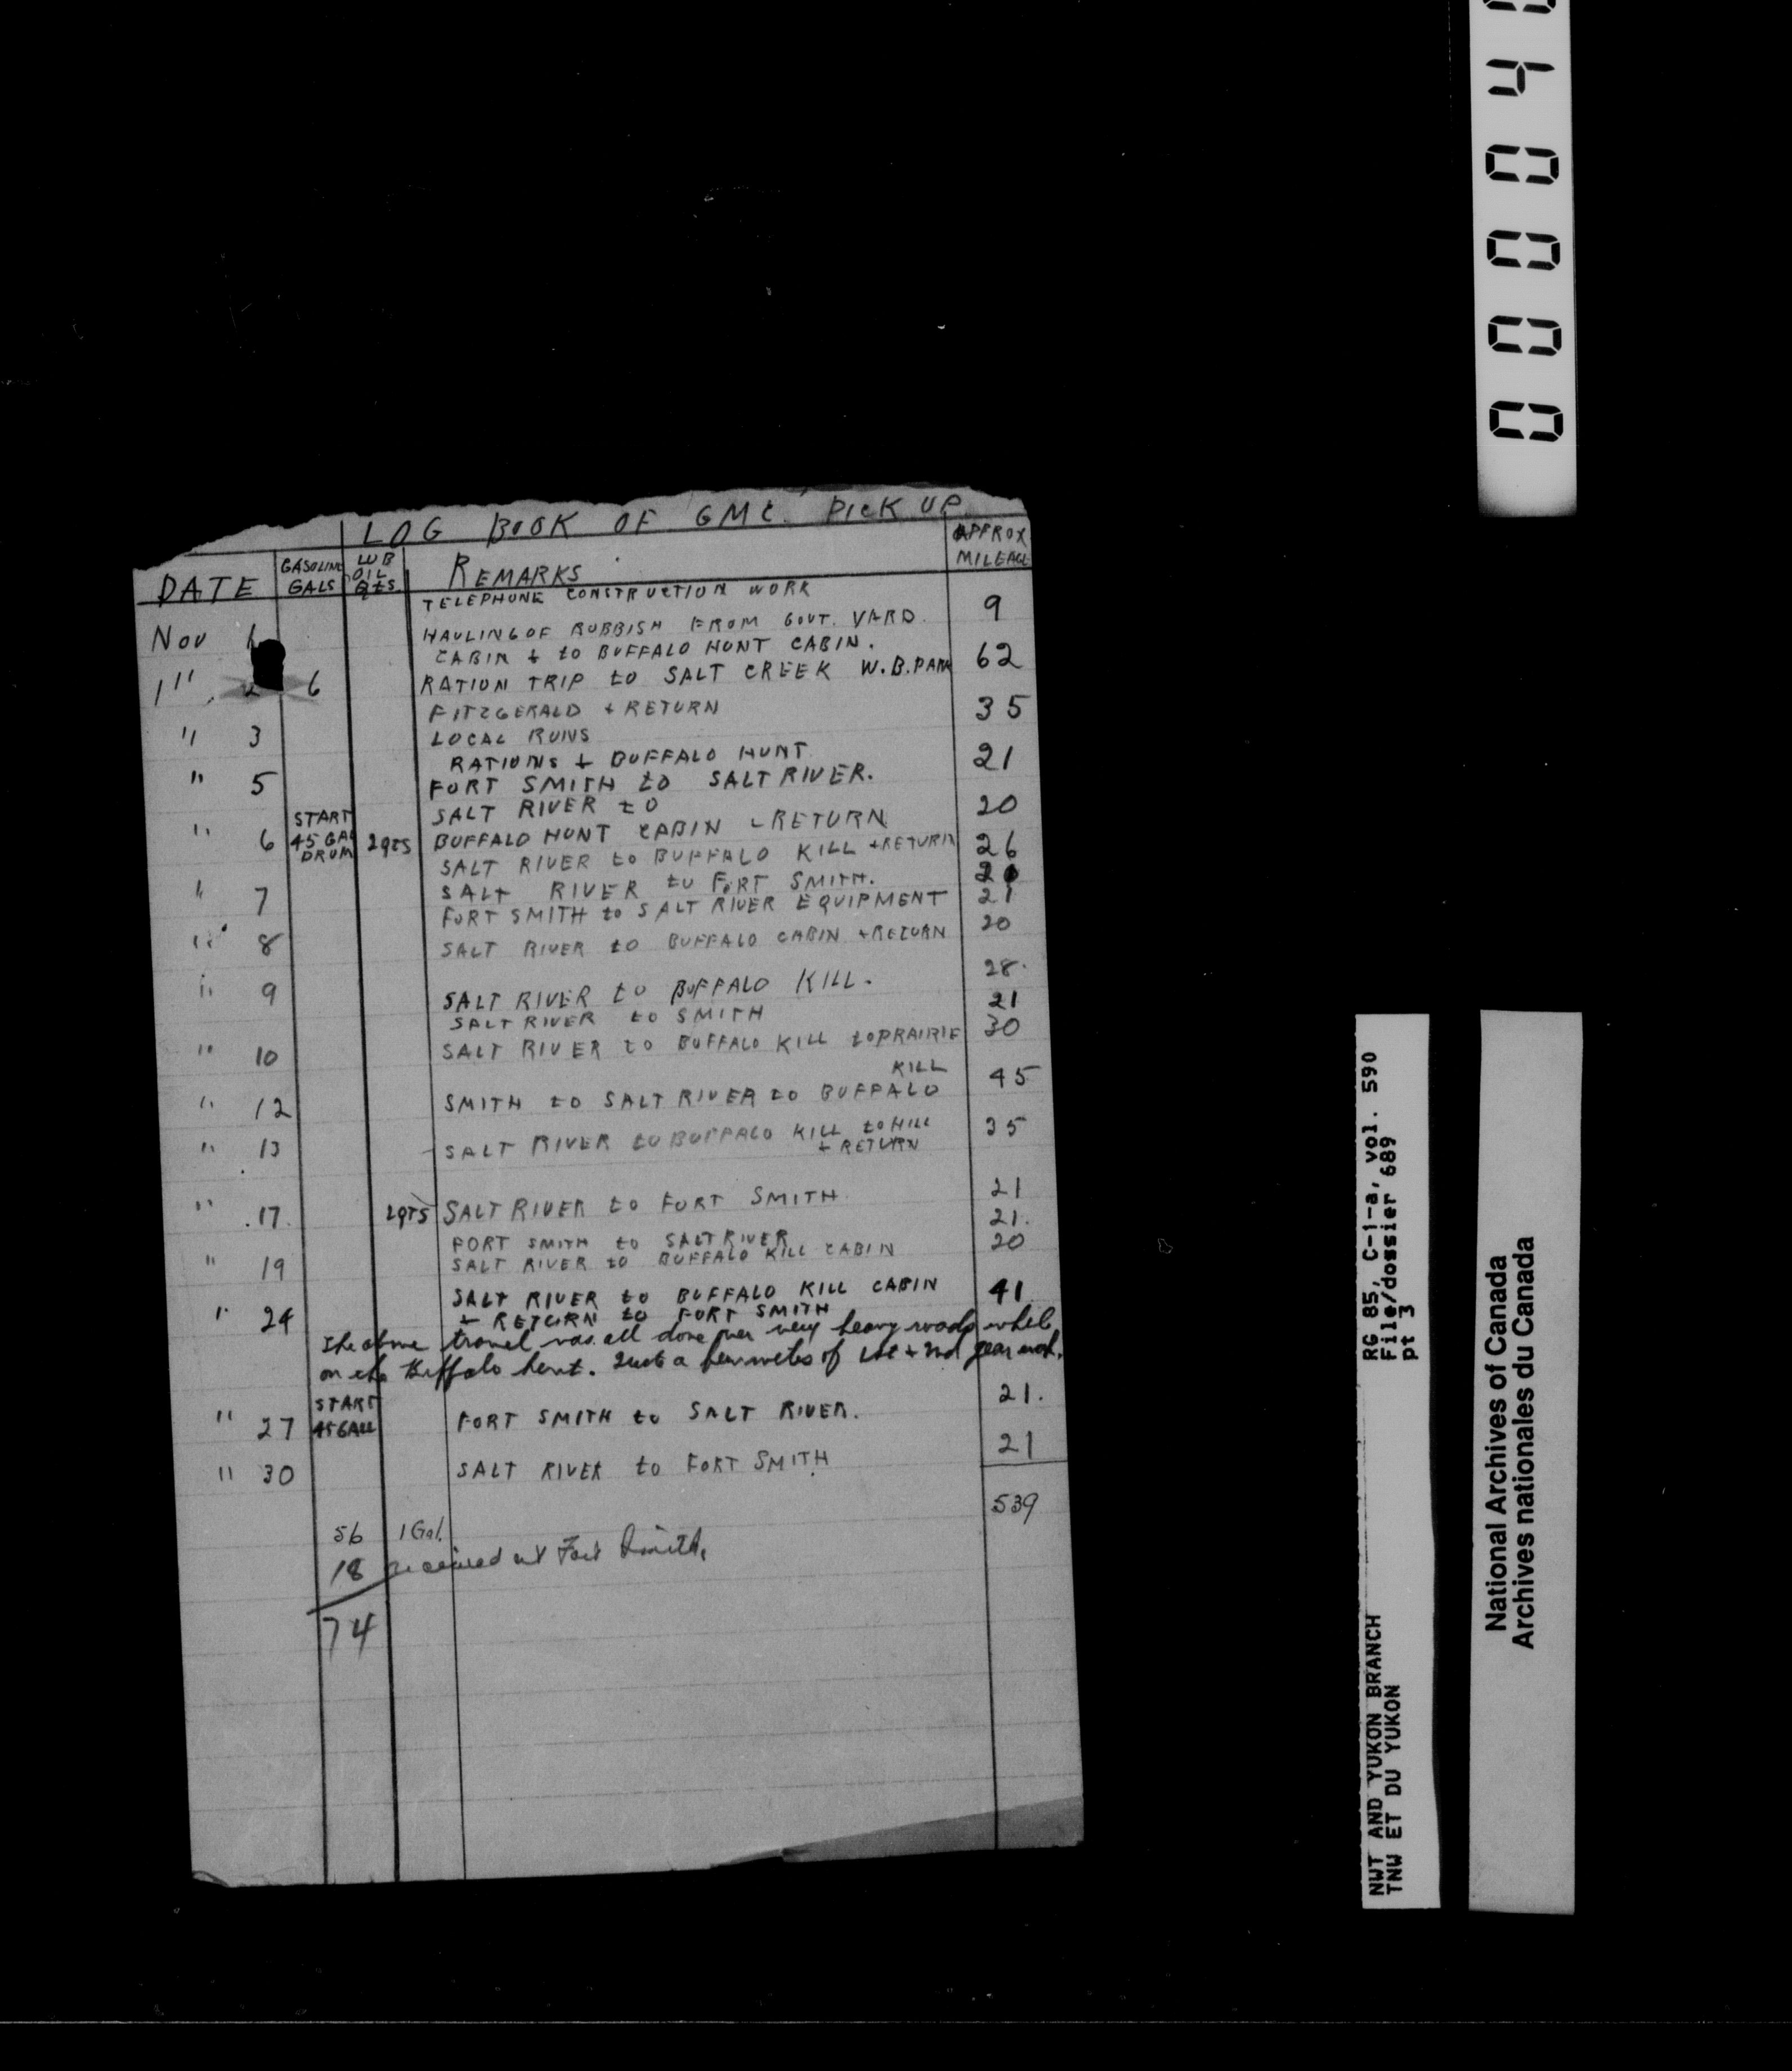 LOG BOOK OF GMC. PICK UP
DATE GASOLINE GALS LUB OIL QTS. REMARKS APPROX MILEAGE
TELEPHONE CONSTRUCTION WORK
Nov 1 HAULING OF RUBBISH FROM GOVT. YARD. 9
CABIN + to BUFFALO HUNT CABIN.
" 2 6 RATION TRIP to SALT CREEK W.B. PARK 62
FITZGERALD + RETURN 35
" 3 LOCAL RUNS
RATIONS + BUFFALO HUNT 21
" 5 FORT SMITH to SALT RIVER.
SALT RIVER to 20
" 6 START 45 GAL DRUM 2 qts BUFFALO HUNT CABIN + RETURN
SALT RIVER to BUFFALO KILL + RETURN 26
" 7 SALT RIVER to FORT SMITH. 21
FORT SMITH to SALT RIVER EQUIPMENT 21
" 8 SALT RIVER to BUFFALO CABIN + RETURN 20
" 9 SALT RIVER to BUFFALO KILL. 28.
SALT RIVER to SMITH 21
" 10 SALT RIVER to BUFFALO KILL to PRAIRIE 30
KILL
" 12 SMITH to SALT RIVER to BUFFALO 45
" 13 SALT RIVER to BUFFALO KILL to HILL 35
+ RETURN
" 17. 2 QTS SALT RIVER to FORT SMITH 21
FORT SMITH to SALT RIVER 21.
" 19 SALT RIVER to BUFFALO KILL CABIN 20
SALT RIVER to BUFFALO KILL CABIN 41
" 24 + RETURN to FORT SMITH
The above travel was all done over very heavy roads while
on the Buffalo hunt. Just a few miles of 1st + 2nd gear work.
" 27 START 45 GALL FORT SMITH to SALT RIVER. 21.
" 30 SALT RIVER to FORT SMITH 21
539
56 1 Gal.
18 received at Fort Smith.
74
00004
RG 85, C-1-a, vol. 590
File/dossier 689
pt 3
NWT AND YUKON BRANCH
TNW ET DU YUKON
National Archives of Canada
Archives nationales du Canada